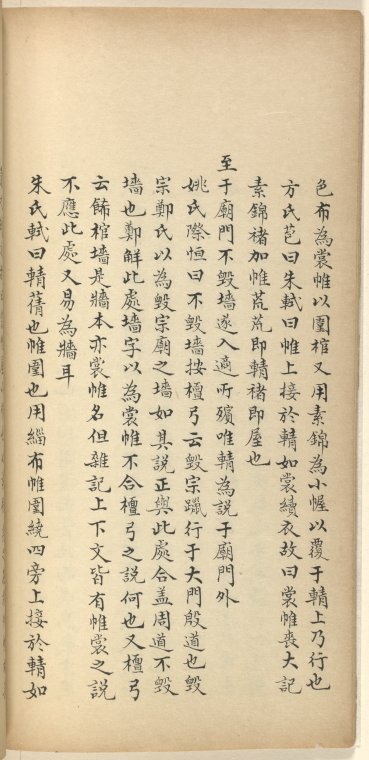 色布為裳帷以圍棺又用素錦為小幄以覆于輤上乃行也
方氏苞曰朱軾曰帷上接於輤如裳續衣故曰裳帷喪大記
素錦禇加帷荒荒即輤禇即屋也
至于廟門不毀墻遂入適所殯唯輤為說于廟門外
姚氏際恒曰不毀墻按檀弓云毀宗躐行于大門殷道也毀
宗鄭氏以為毀宗廟之墻如其說正與此處合盖周道不毀
墻也鄭解此處墻字以為裳帷不合檀弓之說何也又檀弓
云飾棺墻是牆本亦裳帷名但雜記上下文皆有帷裳之說
不應此處又易為牆耳
朱氏軾曰輤蒨也帷圍也用緇布帷圍繞四旁上接於輤如